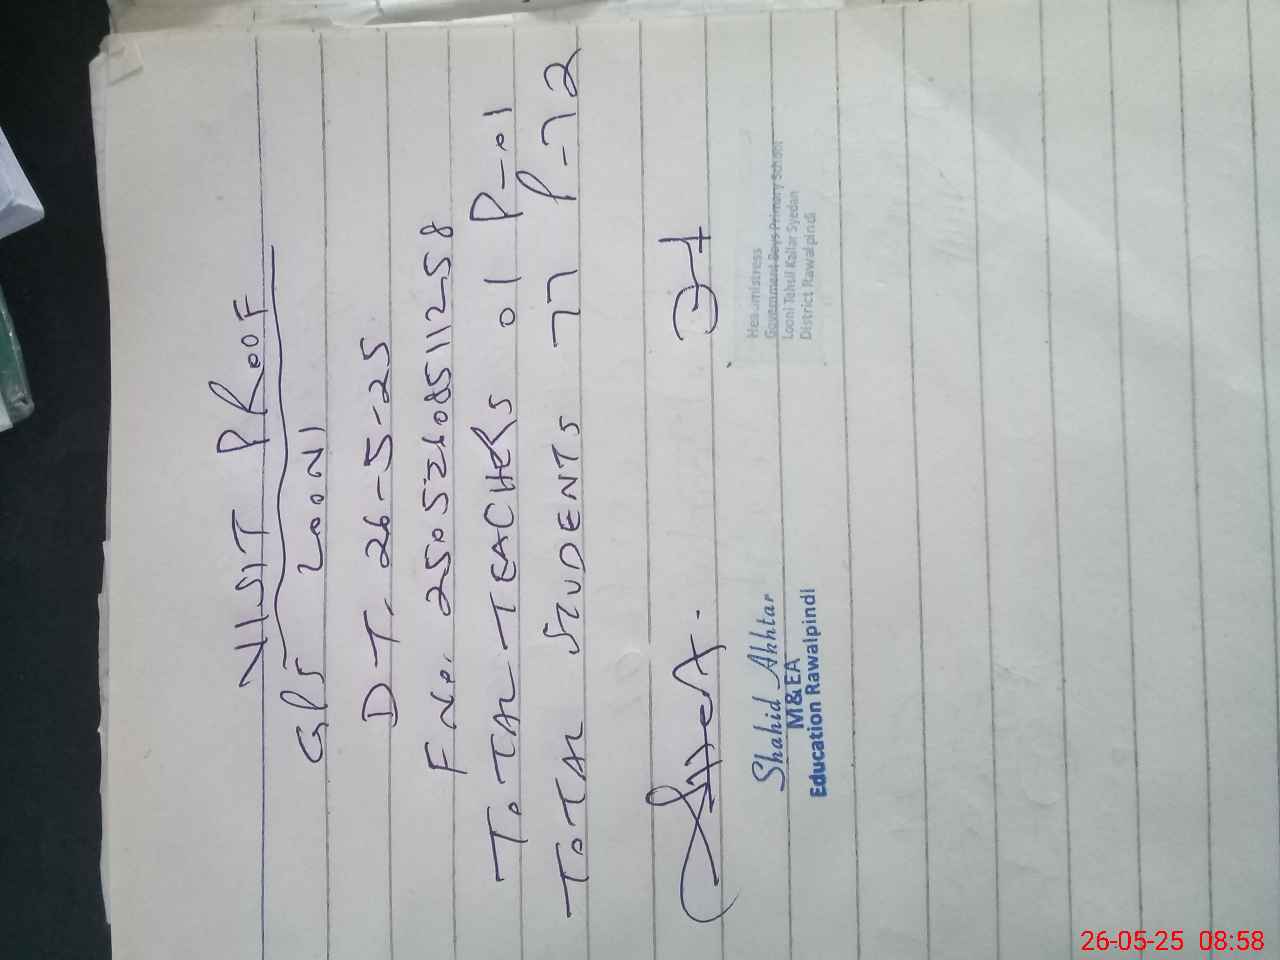 VISIT PROOF
GPS LOONI
DT. 26-5-25
F No. 250526085111258
TOTAL TEACHERS 01 P-01
TOTAL STUDENTS 77 P-72
Shahid Akhtar
M & EA
Education Rawalpindi
Headmistress
Government Boys Primary School
Looni Tehsil Kallar Syedan
District Rawalpindi
26-05-25 08:58